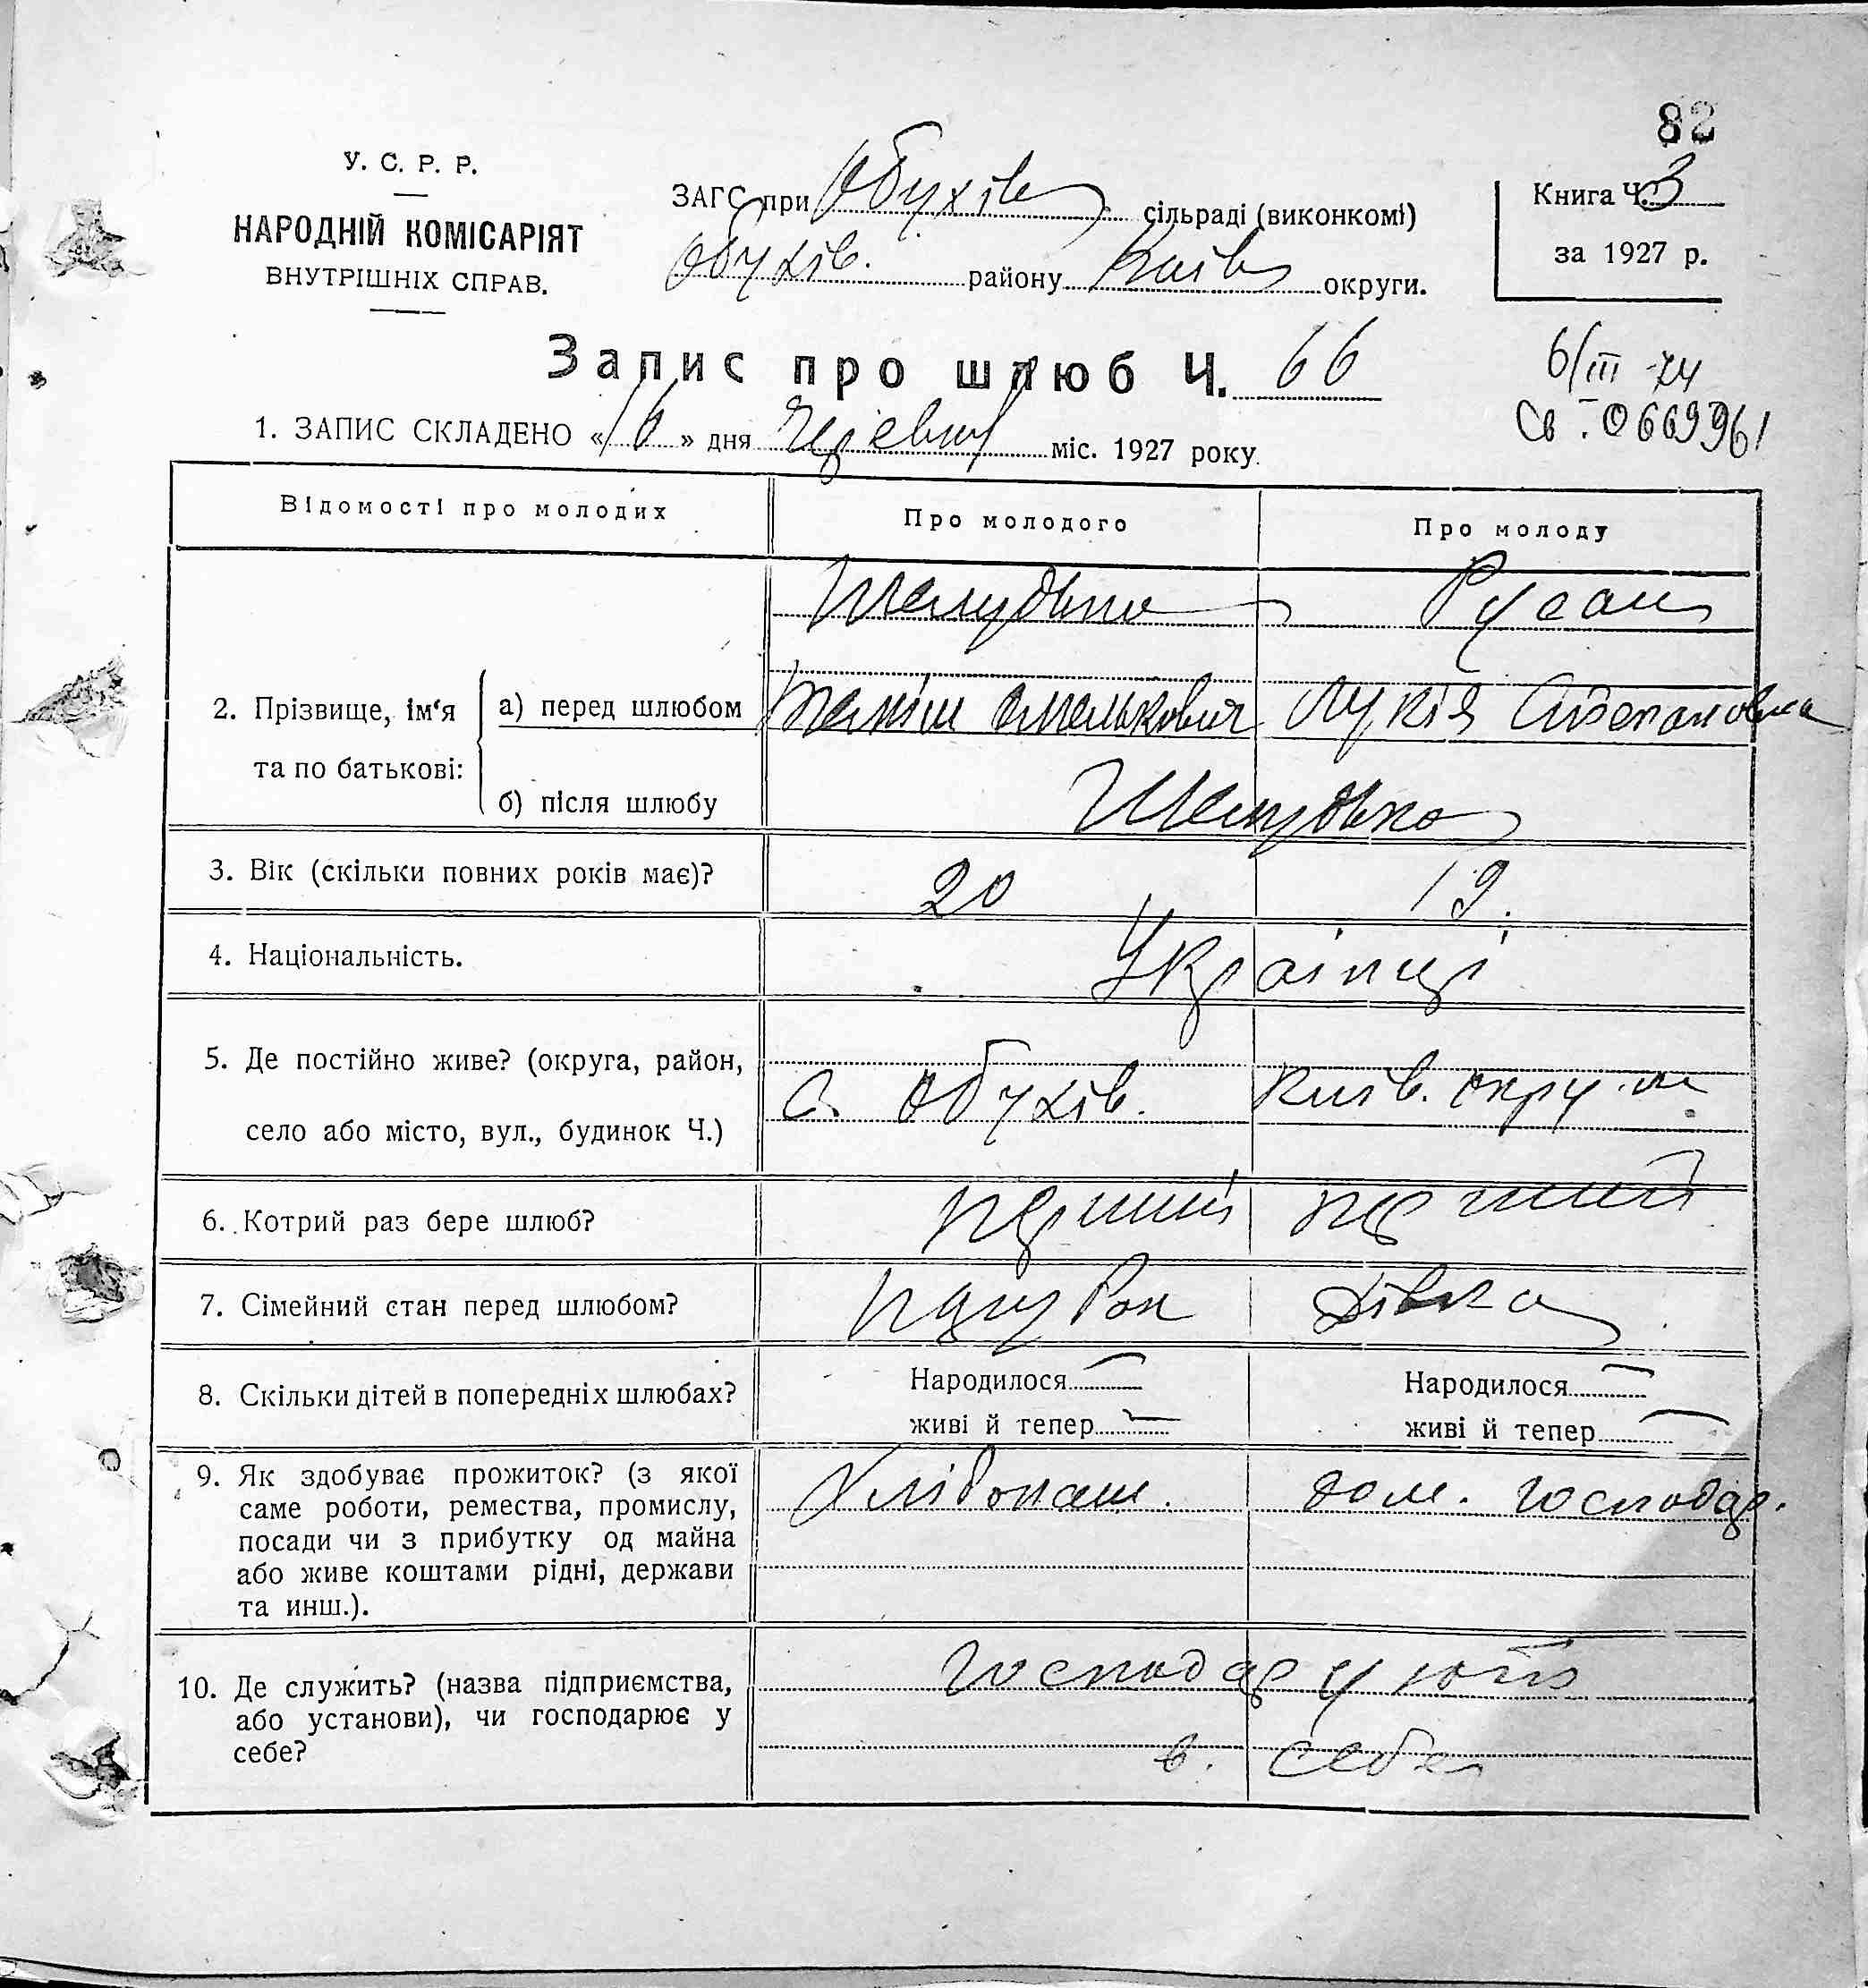 82
У. С. Р. Р.
НАРОДНІЙ КОМІСАРІЯТ
ВНУТРІШНІХ СПРАВ.
ЗАГС при Обухів сільраді (виконкомі)
Обухів. району Київ округи.
Книга Ч. 3
за 1927 р.
Запис про шлюб Ч. 66
6/III -74
Св. 0669961
1. ЗАПИС СКЛАДЕНО «16» дня Червня міс. 1927 року.
Відомості про молодих Про молодого Про молоду
Шелудько Русан
2. Прізвище, ім'я та по батькові:
а) перед шлюбом Омелькович Лукія Степановна
б) після шлюбу Шелудько
3. Вік (скільки повних років має)? 20 19.
4. Національність. Українці
5. Де постійно живе? (округа, район,
с. Обухів. Київ. округи
село або місто, вул., будинок Ч.)
6. Котрий раз бере шлюб? перший перший
7. Сімейний стан перед шлюбом? парубок дівка
8. Скільки дітей в попередніх шлюбах? Народилося — Народилося —
живі й тепер — живі й тепер —
9. Як здобуває прожиток? (з якої
саме роботи, ремества, промислу, Хлібопаш. дом. господар.
посади чи з прибутку од майна
або живе коштами рідні, держави
та инш.).
10. Де служить? (назва підприємства, господарують
або установи), чи господарює у
себе? в. себе